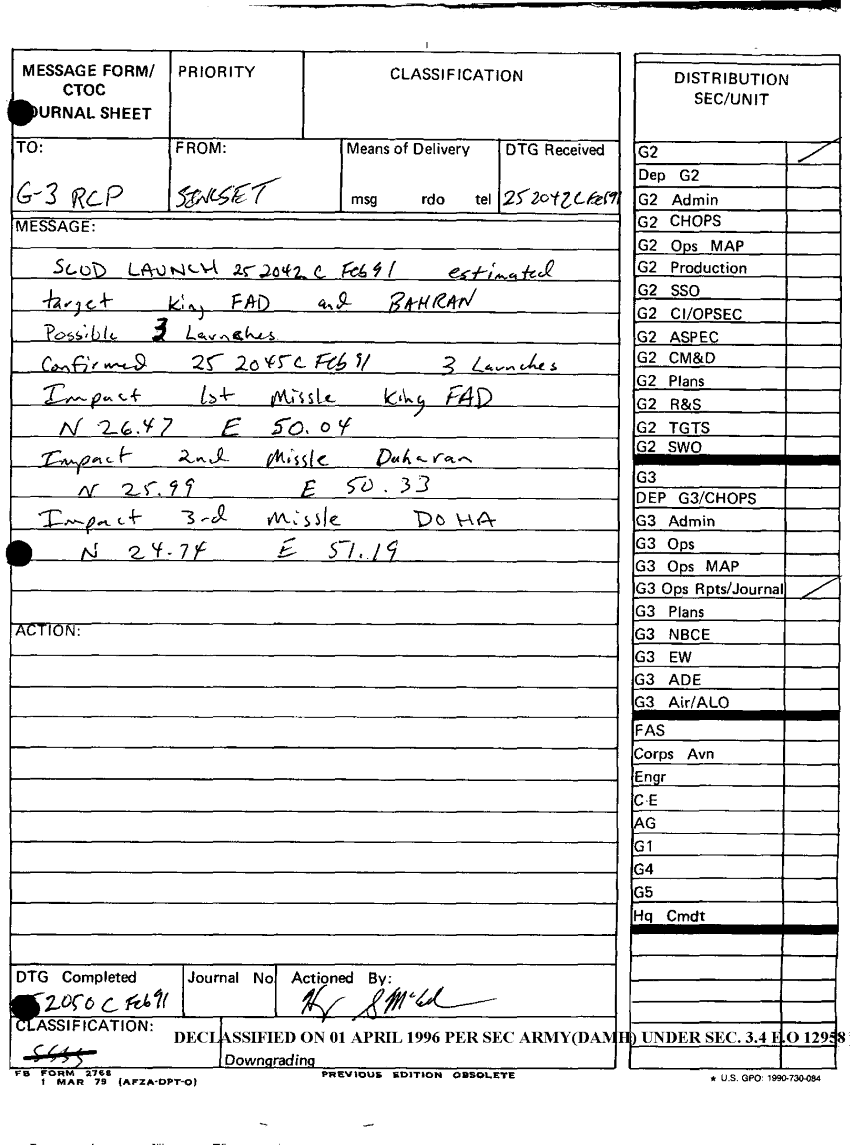 MESSAGE FORM/
CTOC
OURNAL SHEET
PRIORITY
CLASSIFICATION
TO:
G-3 RCP
FROM:
Means of Delivery
msg rdo tel
DTG Received
25 2042 C Feb 91
MESSAGE:
SCUD LAUNCH 25 2042 C Feb 91 estimated
target King FAD and BAHRAN
Possible 3 Launches
Confirmed 25 2045 C Feb 91 3 Launches
Impact 1st Missle King FAD
N 26.47 E 50.04
Impact 2nd Missle Daharan
N 25.99 E 50.33
Impact 3rd Missle DOHA
N 24.74 E 51.19
ACTION:
DTG Completed
2050 C Feb 91
Journal No
Actioned By:
CLASSIFICATION:
DECLASSIFIED ON 01 APRIL 1996 PER SEC ARMY(DAMH) UNDER SEC. 3.4 E.O 12958
Downgrading
FB FORM 2768
1 MAR 79 (AFZA-DPT-O)
PREVIOUS EDITION OBSOLETE
★ U.S. GPO: 1990-730-084
DISTRIBUTION
SEC/UNIT
G2
Dep G2
G2 Admin
G2 CHOPS
G2 Ops MAP
G2 Production
G2 SSO
G2 CI/OPSEC
G2 ASPEC
G2 CM&D
G2 Plans
G2 R&S
G2 TGTS
G2 SWO
G3
DEP G3/CHOPS
G3 Admin
G3 Ops
G3 Ops MAP
G3 Ops Rpts/Journal
G3 Plans
G3 NBCE
G3 EW
G3 ADE
G3 Air/ALO
FAS
Corps Avn
Engr
C-E
AG
G1
G4
G5
Hq Cmdt